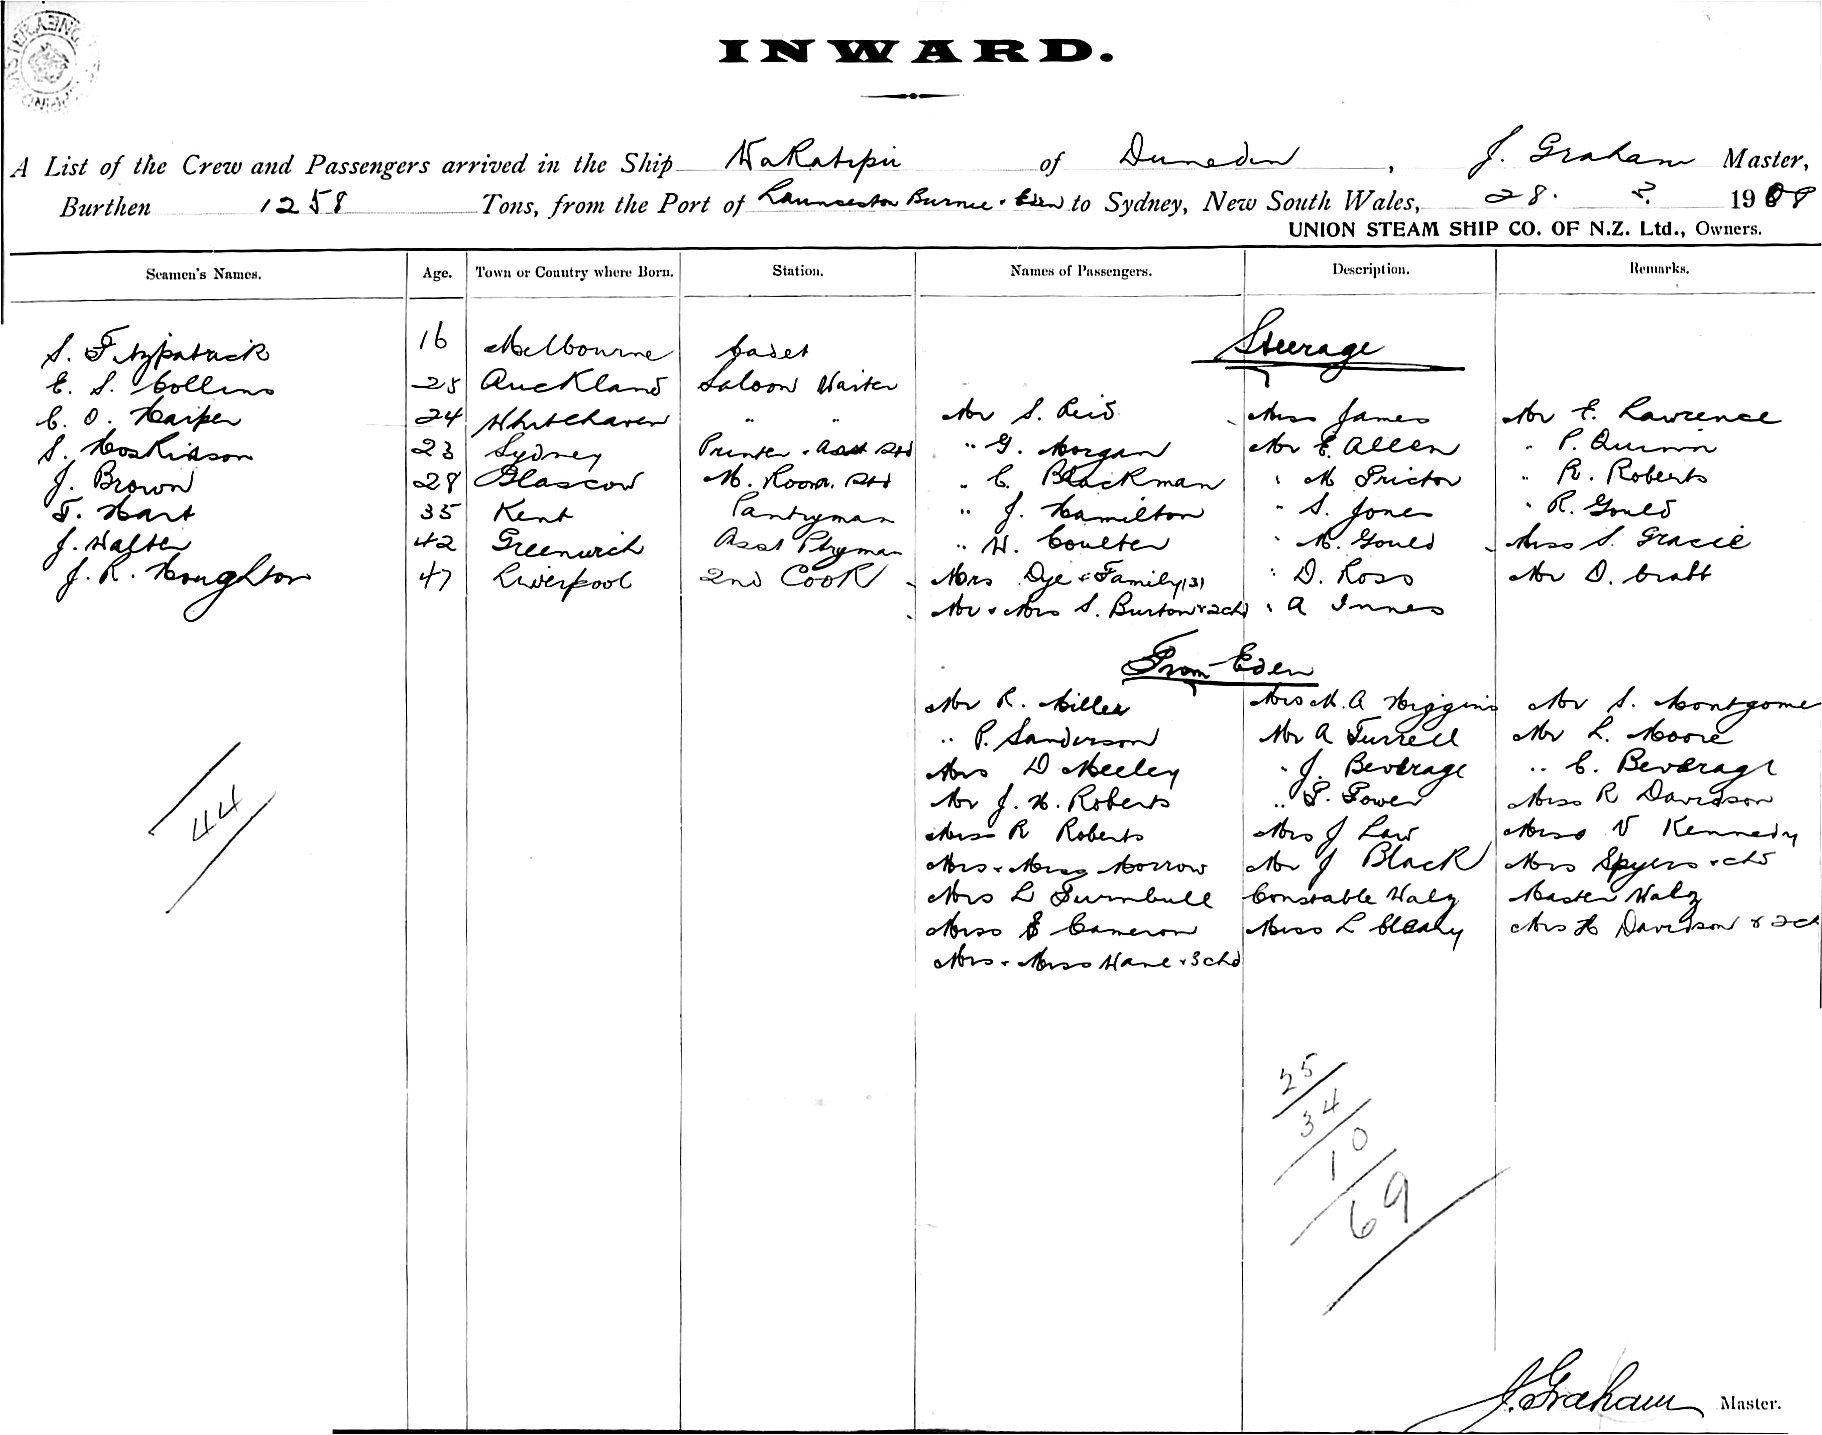 INWARD.
A List of the Crew and Passengers arrived in the Ship Wakatipu of Dunedin, J. Graham Master,
Burthen 1258 Tons, from the Port of Launceston Burnie & Eden to Sydney, New South Wales, 28. 2. 1908
UNION STEAM SHIP CO. OF N.Z. Ltd., Owners.
Seamen's Names. Age. Town or Country where Born. Station. Names of Passengers. Description. Remarks.
Steerage
S. Fitzpatrick 16 Melbourne Cadet
E. S. Collins 25 Auckland Saloon Waiter
C. O. Harper 24 Whitehaven " " Mr S. Reid Miss James Mr E. Lawrence
S. Hoskisson 23 Sydney Printer & Asst Std " G. Morgan Mr E. Allen " P. Quinn
J. Brown 28 Glascow M. Room Std " C. Blackman " M Trictor " R. Roberts
F. Hart 35 Kent Pantryman " J. Hamilton " S. Jones " R. Gould
J. Walter 42 Greenwich Asst Ptryman " W. Coulter " M. Gould Miss S. Gracie
J. R. Houghton 47 Liverpool 2nd Cook Mrs Dye & Family (3) " D. Ross Mr D. Crabb
Mr & Mrs S. Burton & 2chd " A Innes
From Eden
Mr R. Miller Mrs M. A Higgins Mr S. Montgome
" P. Sanderson Mr A Turrell Mr L. Moore
Mrs D Meeley " J. Beverage " C. Beverage
Mr J. H. Roberts " T. Power Miss R Davidson
Miss R Roberts Mrs J Law Miss V Kennedy
Mrs & Miss Morrow Mr J Black Mrs Spyers & chd
Mrs L Turnbull Constable Walz Master Walz
Miss E Cameron Miss L Cleary Mrs H Davidson & 2ch
Mrs & Miss Wane & 3chd
44
25
34
10
69
J. Graham Master.